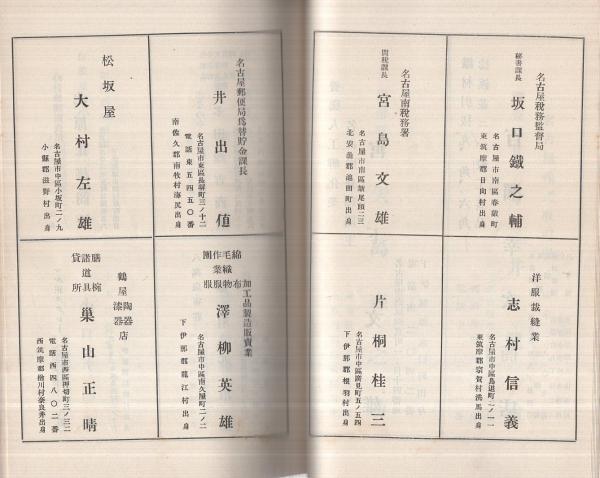 名古屋稅務監督局
秘書課長
坂口鐵之輔
名古屋市南區春敲町
東筑摩郡日向村出身
洋服裁縫業
志村信義
名古屋市中區鳥道町二ノ一一
東筑摩郡宗賀村洗馬出身
名古屋南稅務署
間稅課長
宮島文雄
名古屋市南區瑞尾頭二三
北安曇郡池田町出身
片桐桂三
名古屋市中區流見町五ノ五四
下伊那郡根羽村出身
名古屋郵便局爲替貯金課長
井出値
名古屋市東區長塀町三ノ十二
電話東五四五〇番
南佐久郡南牧村海尻出身
加工品製造販賣業
綿布
毛織物
作業服
團服
澤柳英雄
名古屋市中區南久屋町二ノ二
下伊那郡龍江村出身
松坂屋
大村左雄
名古屋市中區小坂町二ノ九
小縣郡滋野村出身
鶴屋
陶器
漆器
店
膳椀
諸道具
貸所
巢山正晴
名古屋市西區押切町三ノ三二
電話西四八〇二番
西筑摩郡楢川村奈良井出身